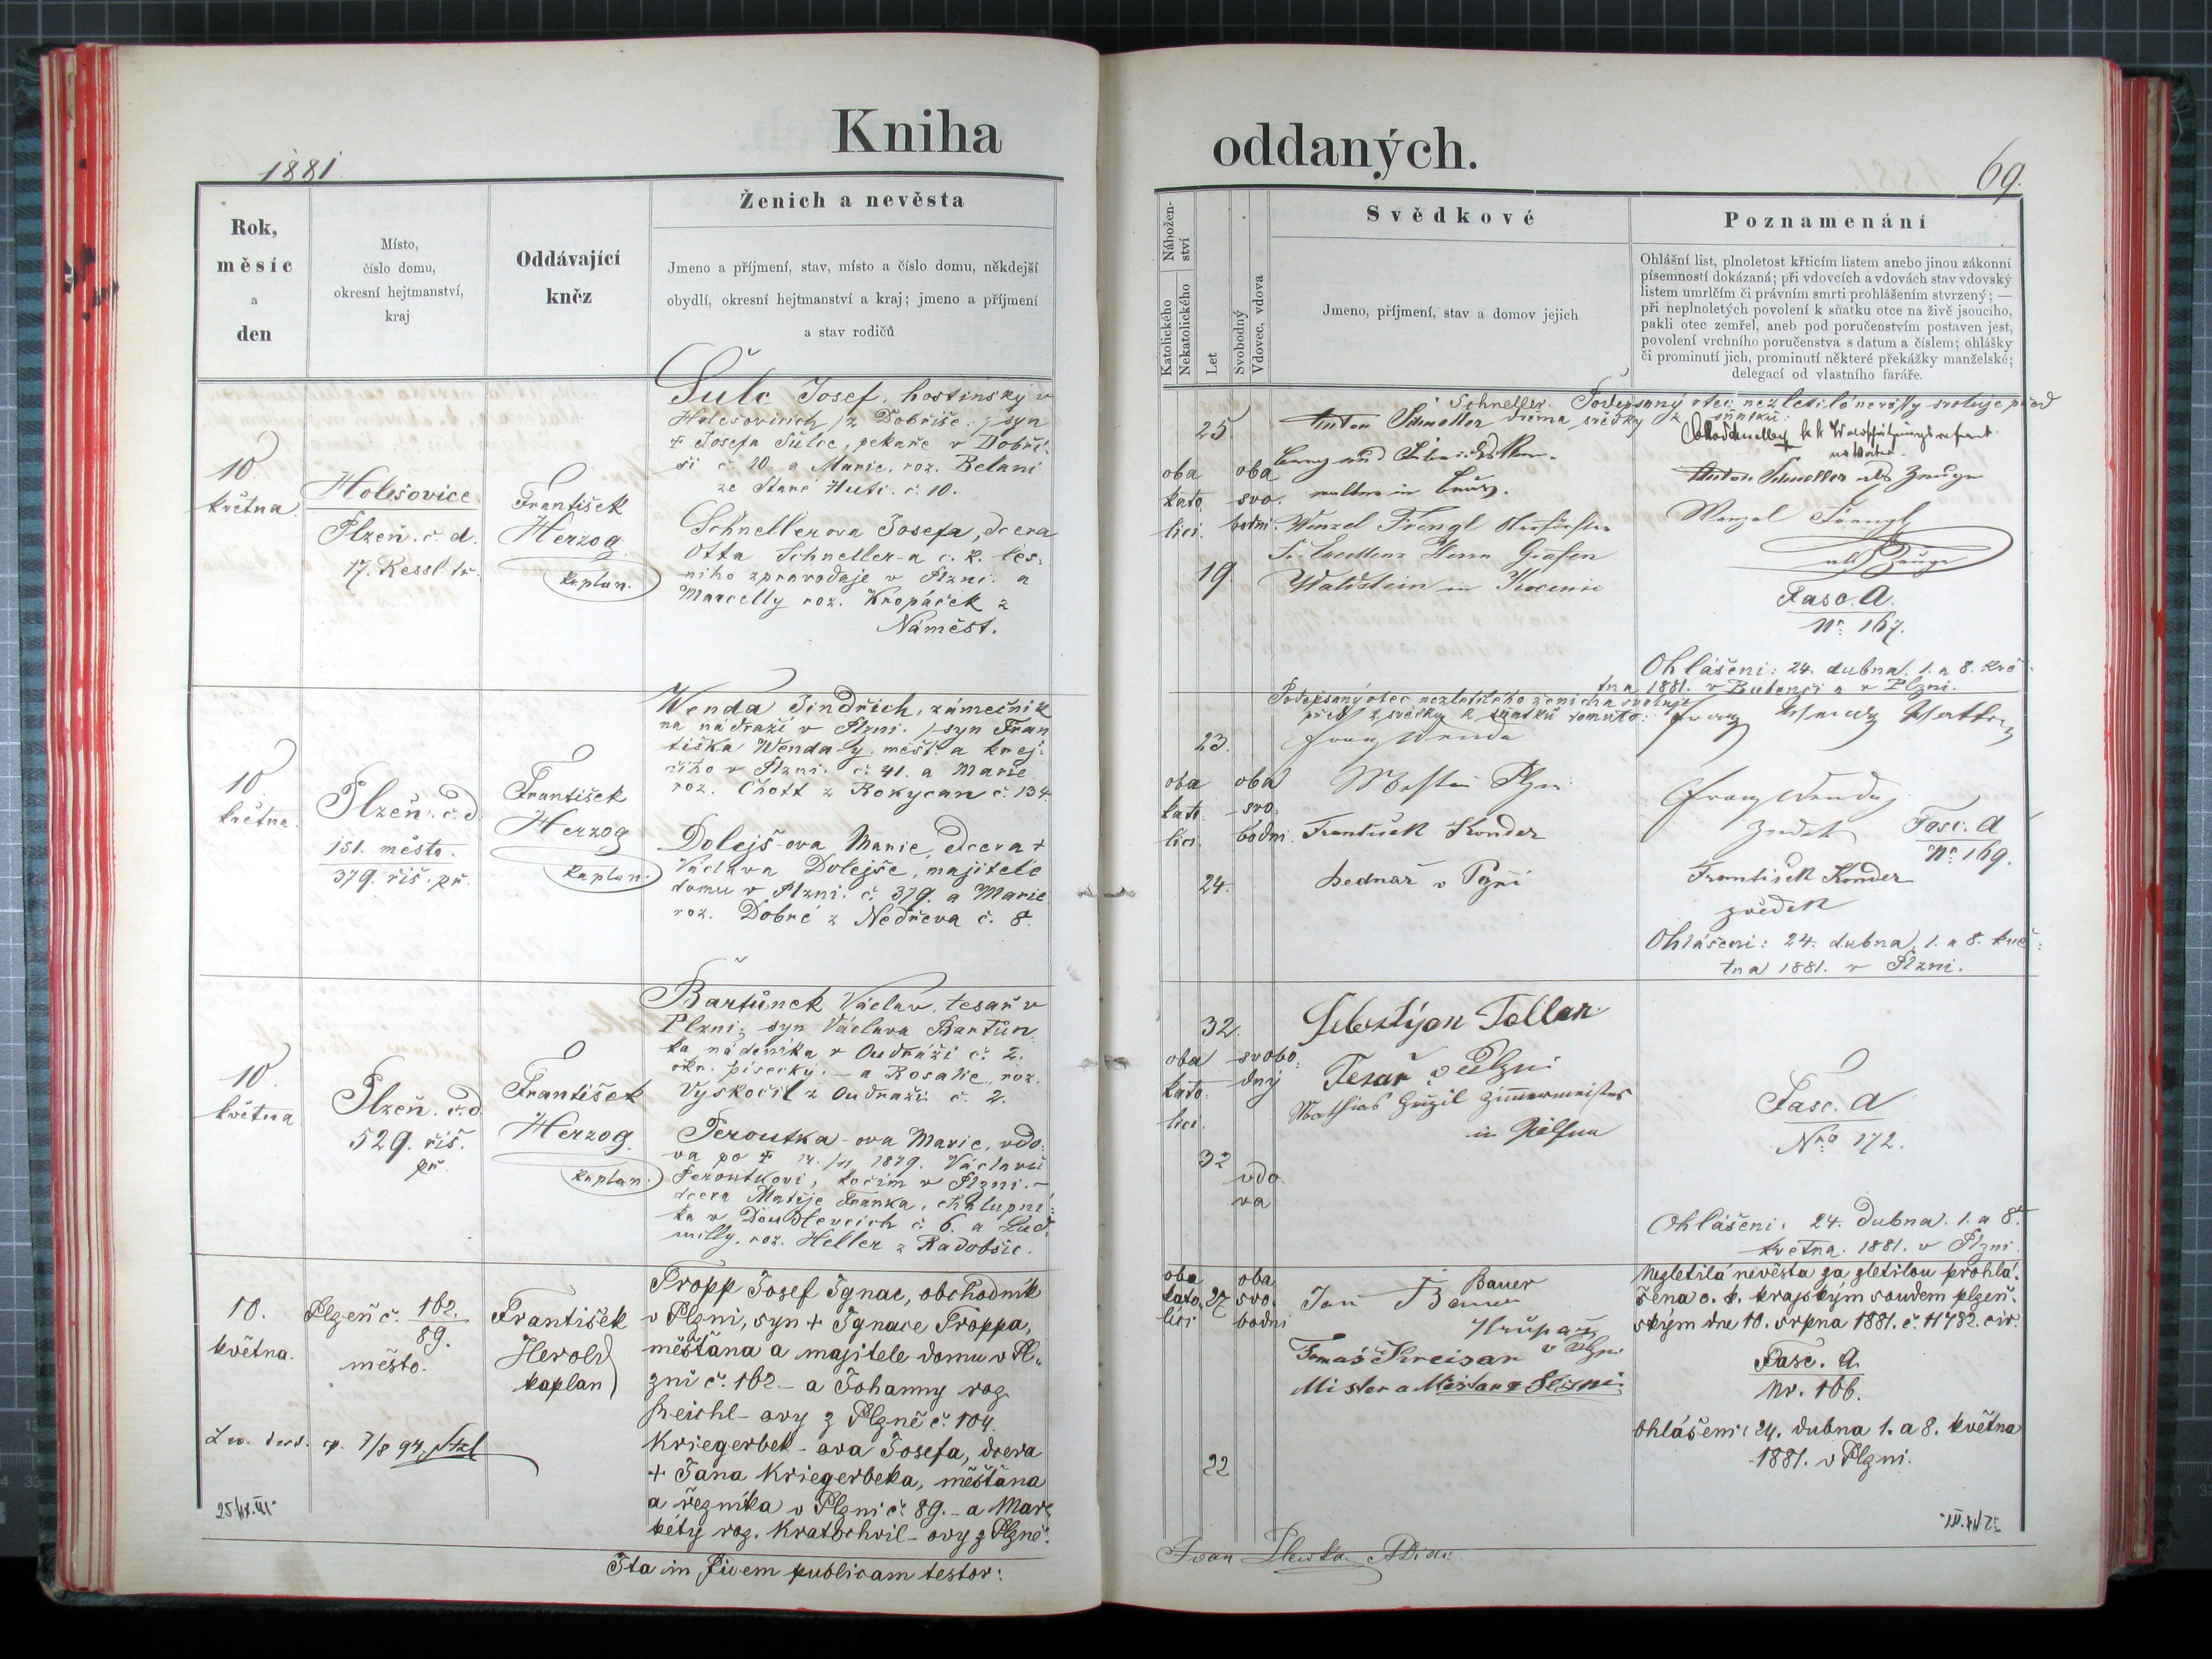 Kniha
1881
Rok,
měsíc
a
den
Místo,
číslo domu,
okresní hejtmanství,
kraj
Oddávající
kněz
Ženich a nevěsta
Jmeno a příjmení, stav, místo a číslo domu, někdejší
obydlí, okresní hejtmanství a kraj; jmeno a příjmení
a stav rodičů
10.
května
Holešovice
Plzeň. č. d.
17. Ressl tř.
František
Herzog
kaplan.
Šulc Josef, hostinský v
Holešovicích z Dobříše, syn
+ Josefa Šulce, pekaře v Dobří-
ši č 20 a Marie, roz. Betani
ze Staré Huti. č. 10.
Schnellerova Josefa, dcera
Otta Schneller-a c. k. les-
ního zpravodaje v Plzni. a
Marcelly roz. Kropáček z
Náměst.
10.
května.
Plzeň. č. d.
151. město.
379. říš. př.
František
Herzog
kaplan.
Wenda Jindřich, zámečník
na nádraží v Plzni. syn Fran
tiška Wenda-y, měšt. a krej-
čího v Plzni. č. 41. a Marie
roz. Chott z Rokycan č. 134.
Dolejš-ova Marie, dcera +
Václava Dolejše, majitele
domu v Plzni. č. 379. a Marie
roz. Dobré z Nedřeva č. 8.
10.
května
Plzeň. č. d.
529. říš.
př.
František
Herzog
kaplan.
Bartůnek Václav, tesař v
Plzni, syn Václava Bartůn
ka nádeníka v Oudraži č. 2.
okr. písecký. – a Rosalie, roz.
Vyskočil z Oudraži č. 2.
Peroutka-ova Marie, vdo-
va po + 14./11 1879. Václavu
Peroutkovi, kočím v Plzni. –
dcera Matěje Franka, chalupní-
ka v Doudlevcích č. 6. a Lud-
milly. roz. Heller z Radobšic.
10.
května.
Plzeň č. 162.
89.
město.
František
Herold
kaplan
Propp Josef Ignac, obchodník
v Plzni, syn + Ignace Proppa,
měšťana a majitele domu v Pl-
zni č. 162 – a Johanny roz.
Reichl-ovy z Plzně č. 104.
Kriegerbek-ova Josefa, dcera
+ Jana Kriegerbeka, měšťana
a řezníka v Plzni č. 89. – a Mar-
kéty roz. Kratochvil-ovy z Plzně.
7/8 94.
Ita in fidem publicam testor:
oddaných.
69.
Nábožen-
ství
Katolického
Nekatolického
Let
Svobodný
Vdovec, vdova
Svědkové
Jmeno, příjmení, stav a domov jejich
Poznamenání
Ohlášní list, plnoletost křticím listem anebo jinou zákonní
písemností dokázaná; při vdovcích a vdovách stav vdovský
listem umrlčím či právním smrti prohlášením stvrzený; —
při neplnoletých povolení k sňatku otce na živě jsoucího,
pakli otec zemřel, aneb pod poručenstvím postaven jest,
povolení vrchního poručenstva s datum a číslem; ohlášky
či prominutí jich, prominutí některé překážky manželské;
delegací od vlastního faráře.
25.
oba
kato
lici.
oba
svo.
bodni.
19.
Schneller
Anton Schneller
Wenzel
Waldstein in
Podepsaný otec nezletilé nevěsty svoluje před
dvěma svědky k sňatku:
Anton Schneller als Zeuge
Wenzel
als Zeuge
Fasc. A.
Nr. 167.
Ohlášení: 24. dubna, 1. a 8. kvě-
tna 1881. v Bubenči a v Plzni.
Podepsaný otec nezletilého ženicha svoluje
před 2 svědky k sňatku tomuto:
23.
oba
kato
lici.
oba
svo.
bodni.
24.
Franz Wenda
František Konder
bednář v Plzni
Franz Wenda
Fasc. A
Nr. 169.
František Konder
svědek
Ohlášení: 24. dubna, 1. a 8. kvě-
tna 1881. v Plzni.
32.
oba
kato
lici.
svobo-
dný
32
vdo
va
Sebestijan Tollar
Tesař v Plzni
Mathias Zimmermeister
in Pilsen
Fasc. A
Nro 172.
Ohlášení: 24. dubna. 1. a 8.
května. 1881. v Plzni.
oba
kato
lici
27
oba
svo.
bodni
22
Bauer
Jan Bauer
v Plzni
Tomáš Kreisar
Nezletilá nevěsta za zletilou prohlá-
šena c. k. krajským soudem plzeň-
ským dne 10. srpna 1881. č. 11782. civ.
Fasc. A.
Nr. 166.
Ohlášení: 24. dubna 1. a 8. května
1881. v Plzni.